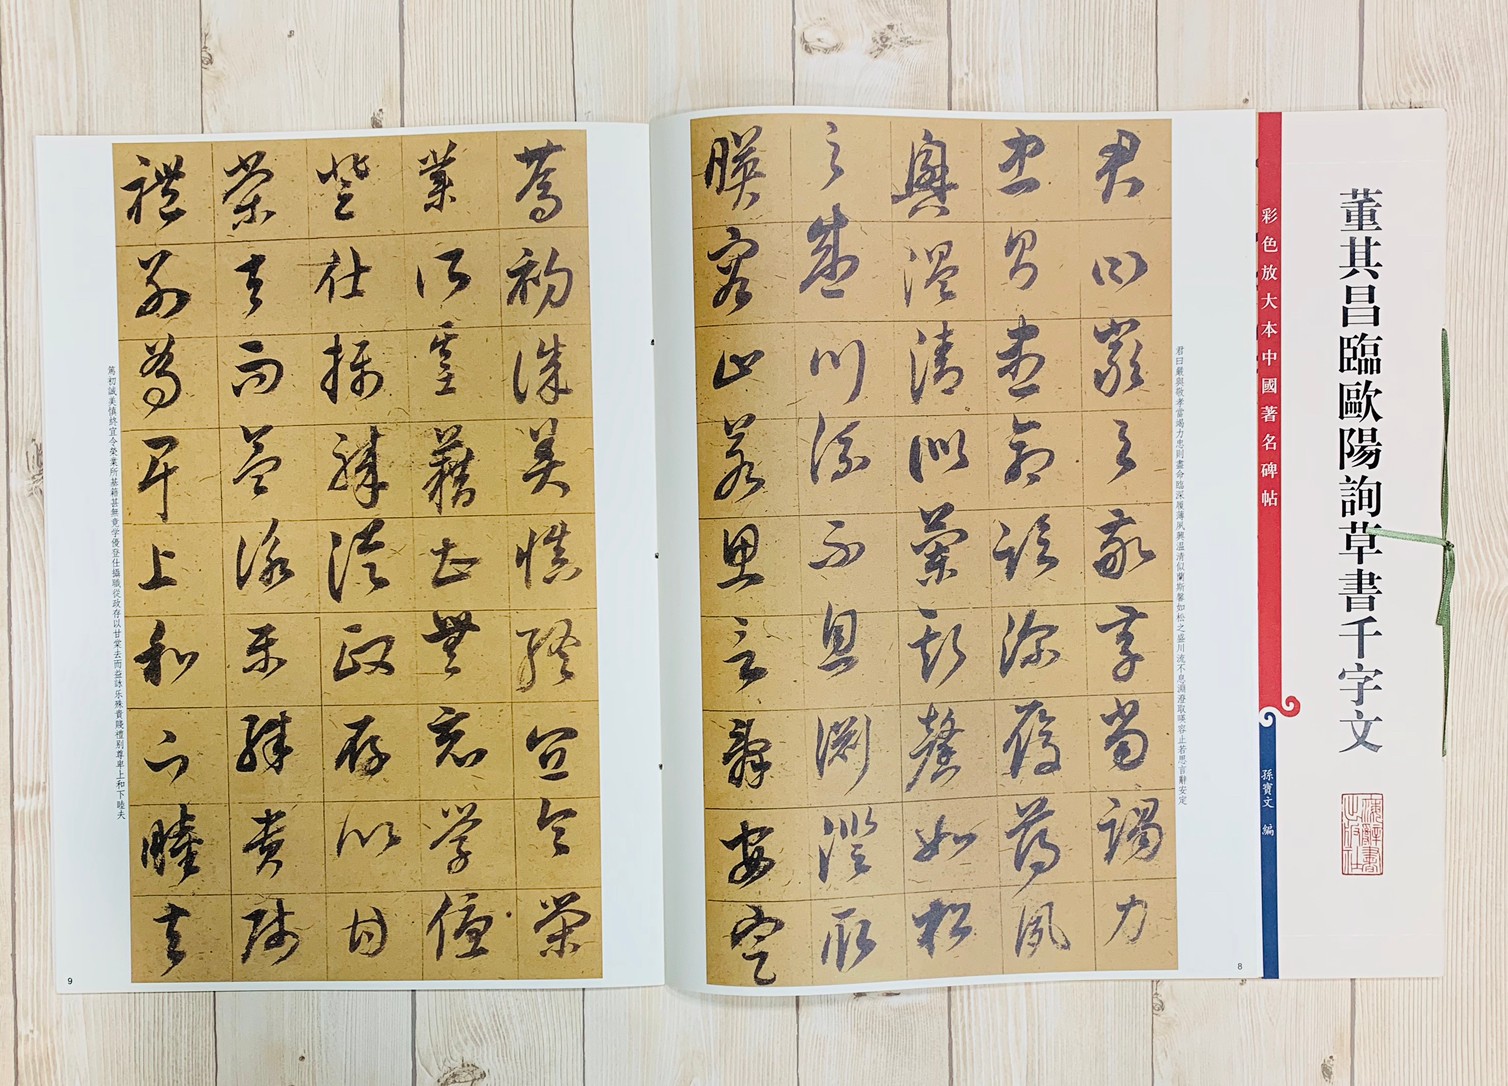 董其昌臨歐陽詢草書千字文
海辭書
出版社
彩色放大本中國著名碑帖
孫寶文 編
君曰嚴與敬孝當竭力忠則盡命臨深履薄夙興溫清似蘭斯馨如松之盛川流不息淵澄取暎容止若思言辭安定
君曰嚴與敬孝當竭力
忠則盡命臨深履薄夙
興溫清似蘭斯馨如松
之盛川流不息淵澄取
暎容止若思言辭安定
8
篤初誠美慎終宜令榮
業所基籍甚無竟學優
登仕攝職從政存以甘
棠去而益詠樂殊貴賤
禮別尊卑上和下睦夫
篤初誠美慎終宜令榮業所基籍甚無竟学優登仕攝職從政存以甘棠去而益詠乐殊貴賤禮別尊卑上和下睦夫
9